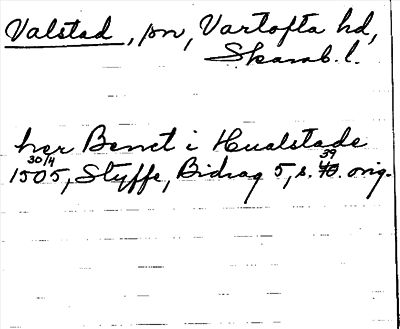 Valstad, sn, Vartofta hd,
Skarab. l.
her Benct i Hualstade
30/4
1505, Styffe, Bidrag 5, s. 39. orig.